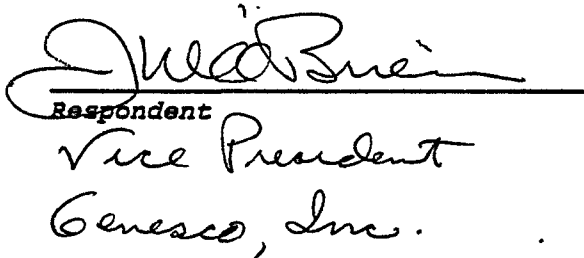 Respondent
Vice President
Genesco, Inc.